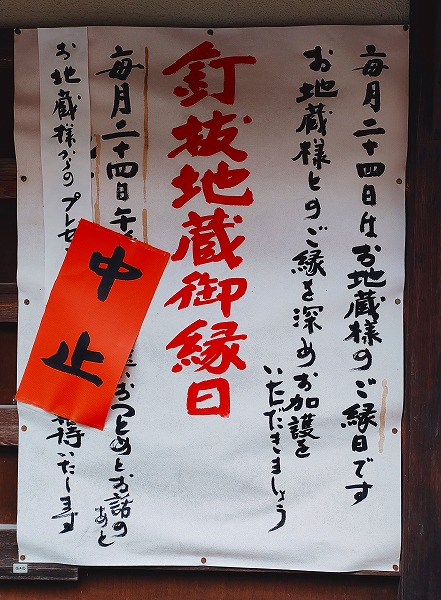 毎月二十四日はお地蔵様のご縁日です
お地蔵様とのご縁を深めお加護を
いただきましょう
釘抜地蔵御縁日
毎月二十四日午
おつとめとお話の
あと
お地蔵様からのプレゼ
待いたします
中止